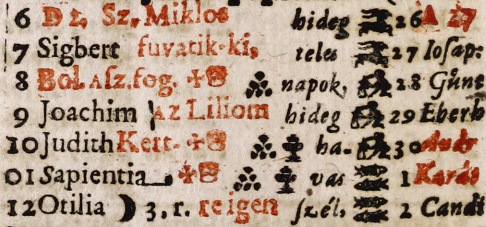 6 D 2. Sz. Miklos hideg 26 A 27
7 Sigbert fuvatik-ki, teles 27 Iosap:
8 Bol. Asz. fog. napok, 28 Gůnt
9 Joachim Az Liliom hideg 29 Eberh
10 Judith Kett- ha- 30 Andr
01 Sapientia vas 1 Karás
12 Otilia 3, 1. reigen szél, 2 Candi